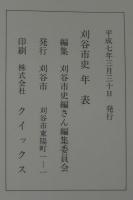 平成七年三月三十日　発行
刈谷市史年表
編集　刈谷市史編さん編集委員会
発行　刈谷市
刈谷市東陽町一―一
印刷　株式会社　クイックス